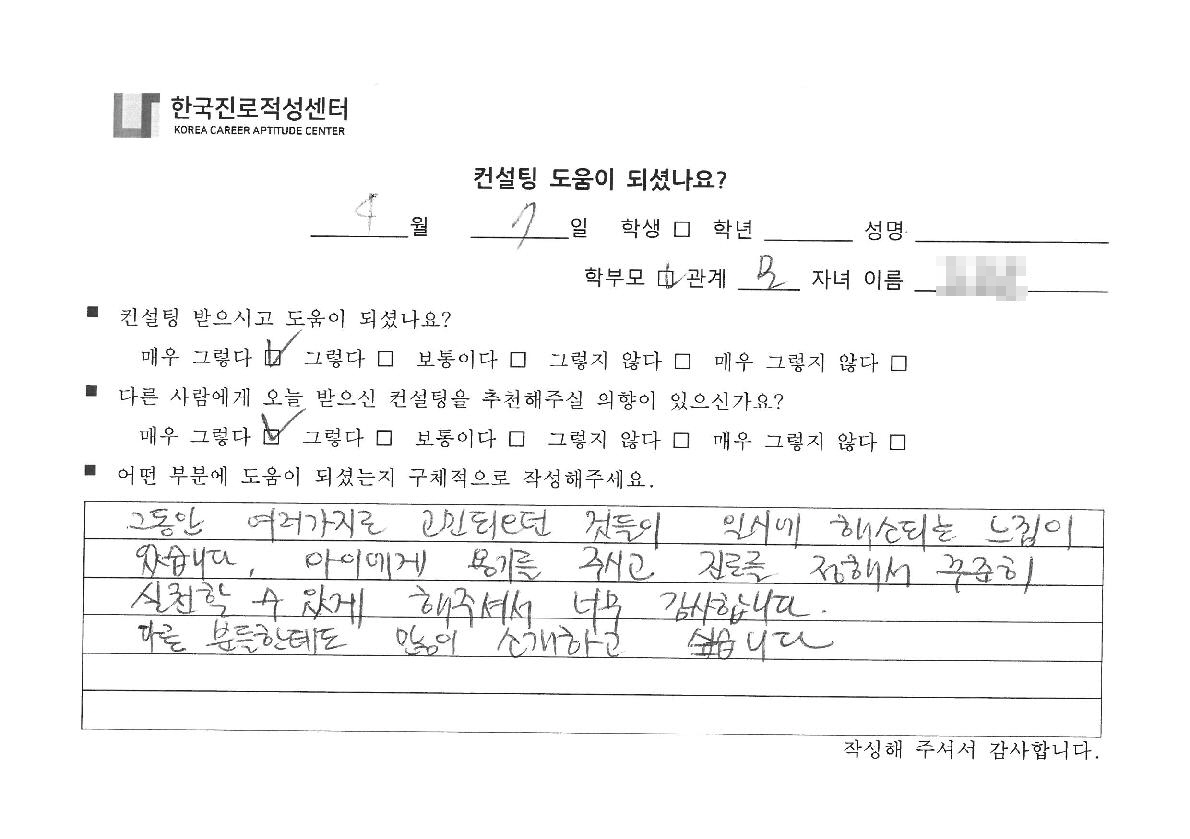 한국진로적성센터
KOREA CAREER APTITUDE CENTER
컨설팅 도움이 되셨나요?
4월 7일 학생 □ 학년 성명
학부모 ☑ 관계 모 자녀 이름
■ 컨설팅 받으시고 도움이 되셨나요?
매우 그렇다 ☑ 그렇다 □ 보통이다 □ 그렇지 않다 □ 매우 그렇지 않다 □
■ 다른 사람에게 오늘 받으신 컨설팅을 추천해주실 의향이 있으신가요?
매우 그렇다 ☑ 그렇다 □ 보통이다 □ 그렇지 않다 □ 매우 그렇지 않다 □
■ 어떤 부분에 도움이 되셨는지 구체적으로 작성해주세요.
그동안 여러가지로 고민되으던 것들이 일시에 해소되는 느낌이
있습니다. 아이에게 용기를 주시고 진로를 정해서 꾸준히
실천할 수 있게 해주셔서 너무 감사합니다.
다른 분들한테도 많이 소개하고 싶습니다
작성해 주셔서 감사합니다.